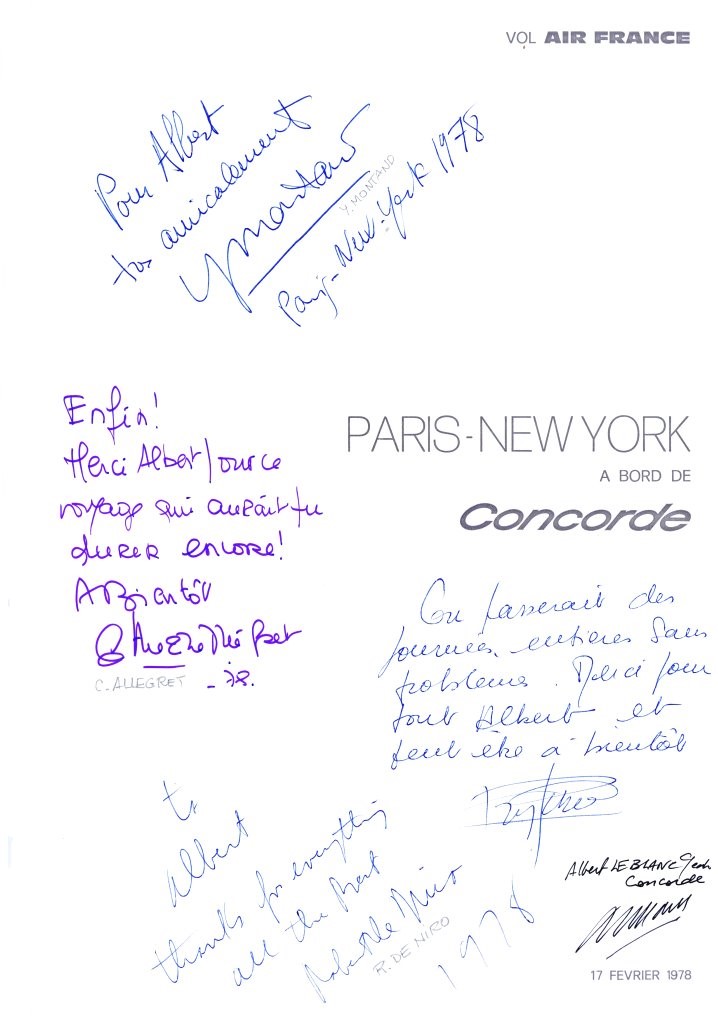 VOL AIR FRANCE
Pour Albert
très amicalement
YMontand
Y. MONTAND
Paris-New-York 1978
Enfin!
Merci Albert pour ce
voyage qui aurait pu
durer encore!
A Bientôt
C. ALLEGRET
- 78.
PARIS-NEW YORK
A BORD DE
Concorde
On passerait des
journées entières sans
problèmes. Merci pour
tout Albert et
peut être à bientôt
to
Albert
thanks for everything
all the Best
Robert De Niro
R. DE NIRO
1978
Albert LEBLANC
Concorde
17 FEVRIER 1978